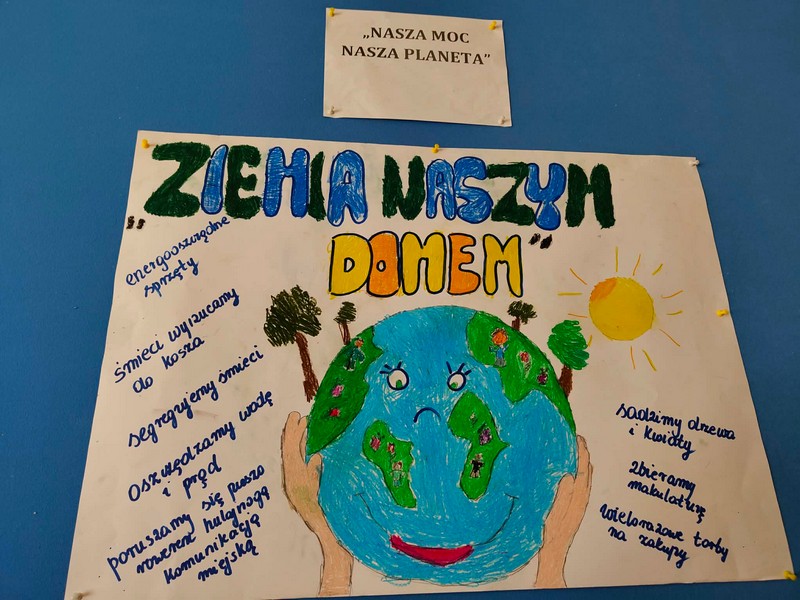 „NASZA MOC
NASZA PLANETA”
„ZIEMIA NASZYM
DOMEM”
energooszczędne
sprzęty
śmieci wyrzucamy
do kosza
segregujemy śmieci
oszczędzamy wodę
i prąd
poruszamy się pieszo
rowerem hulajnogą
komunikacją
miejską
sadzimy drzewa
i kwiaty
zbieramy
makulaturę
wielorazowe torby
na zakupy